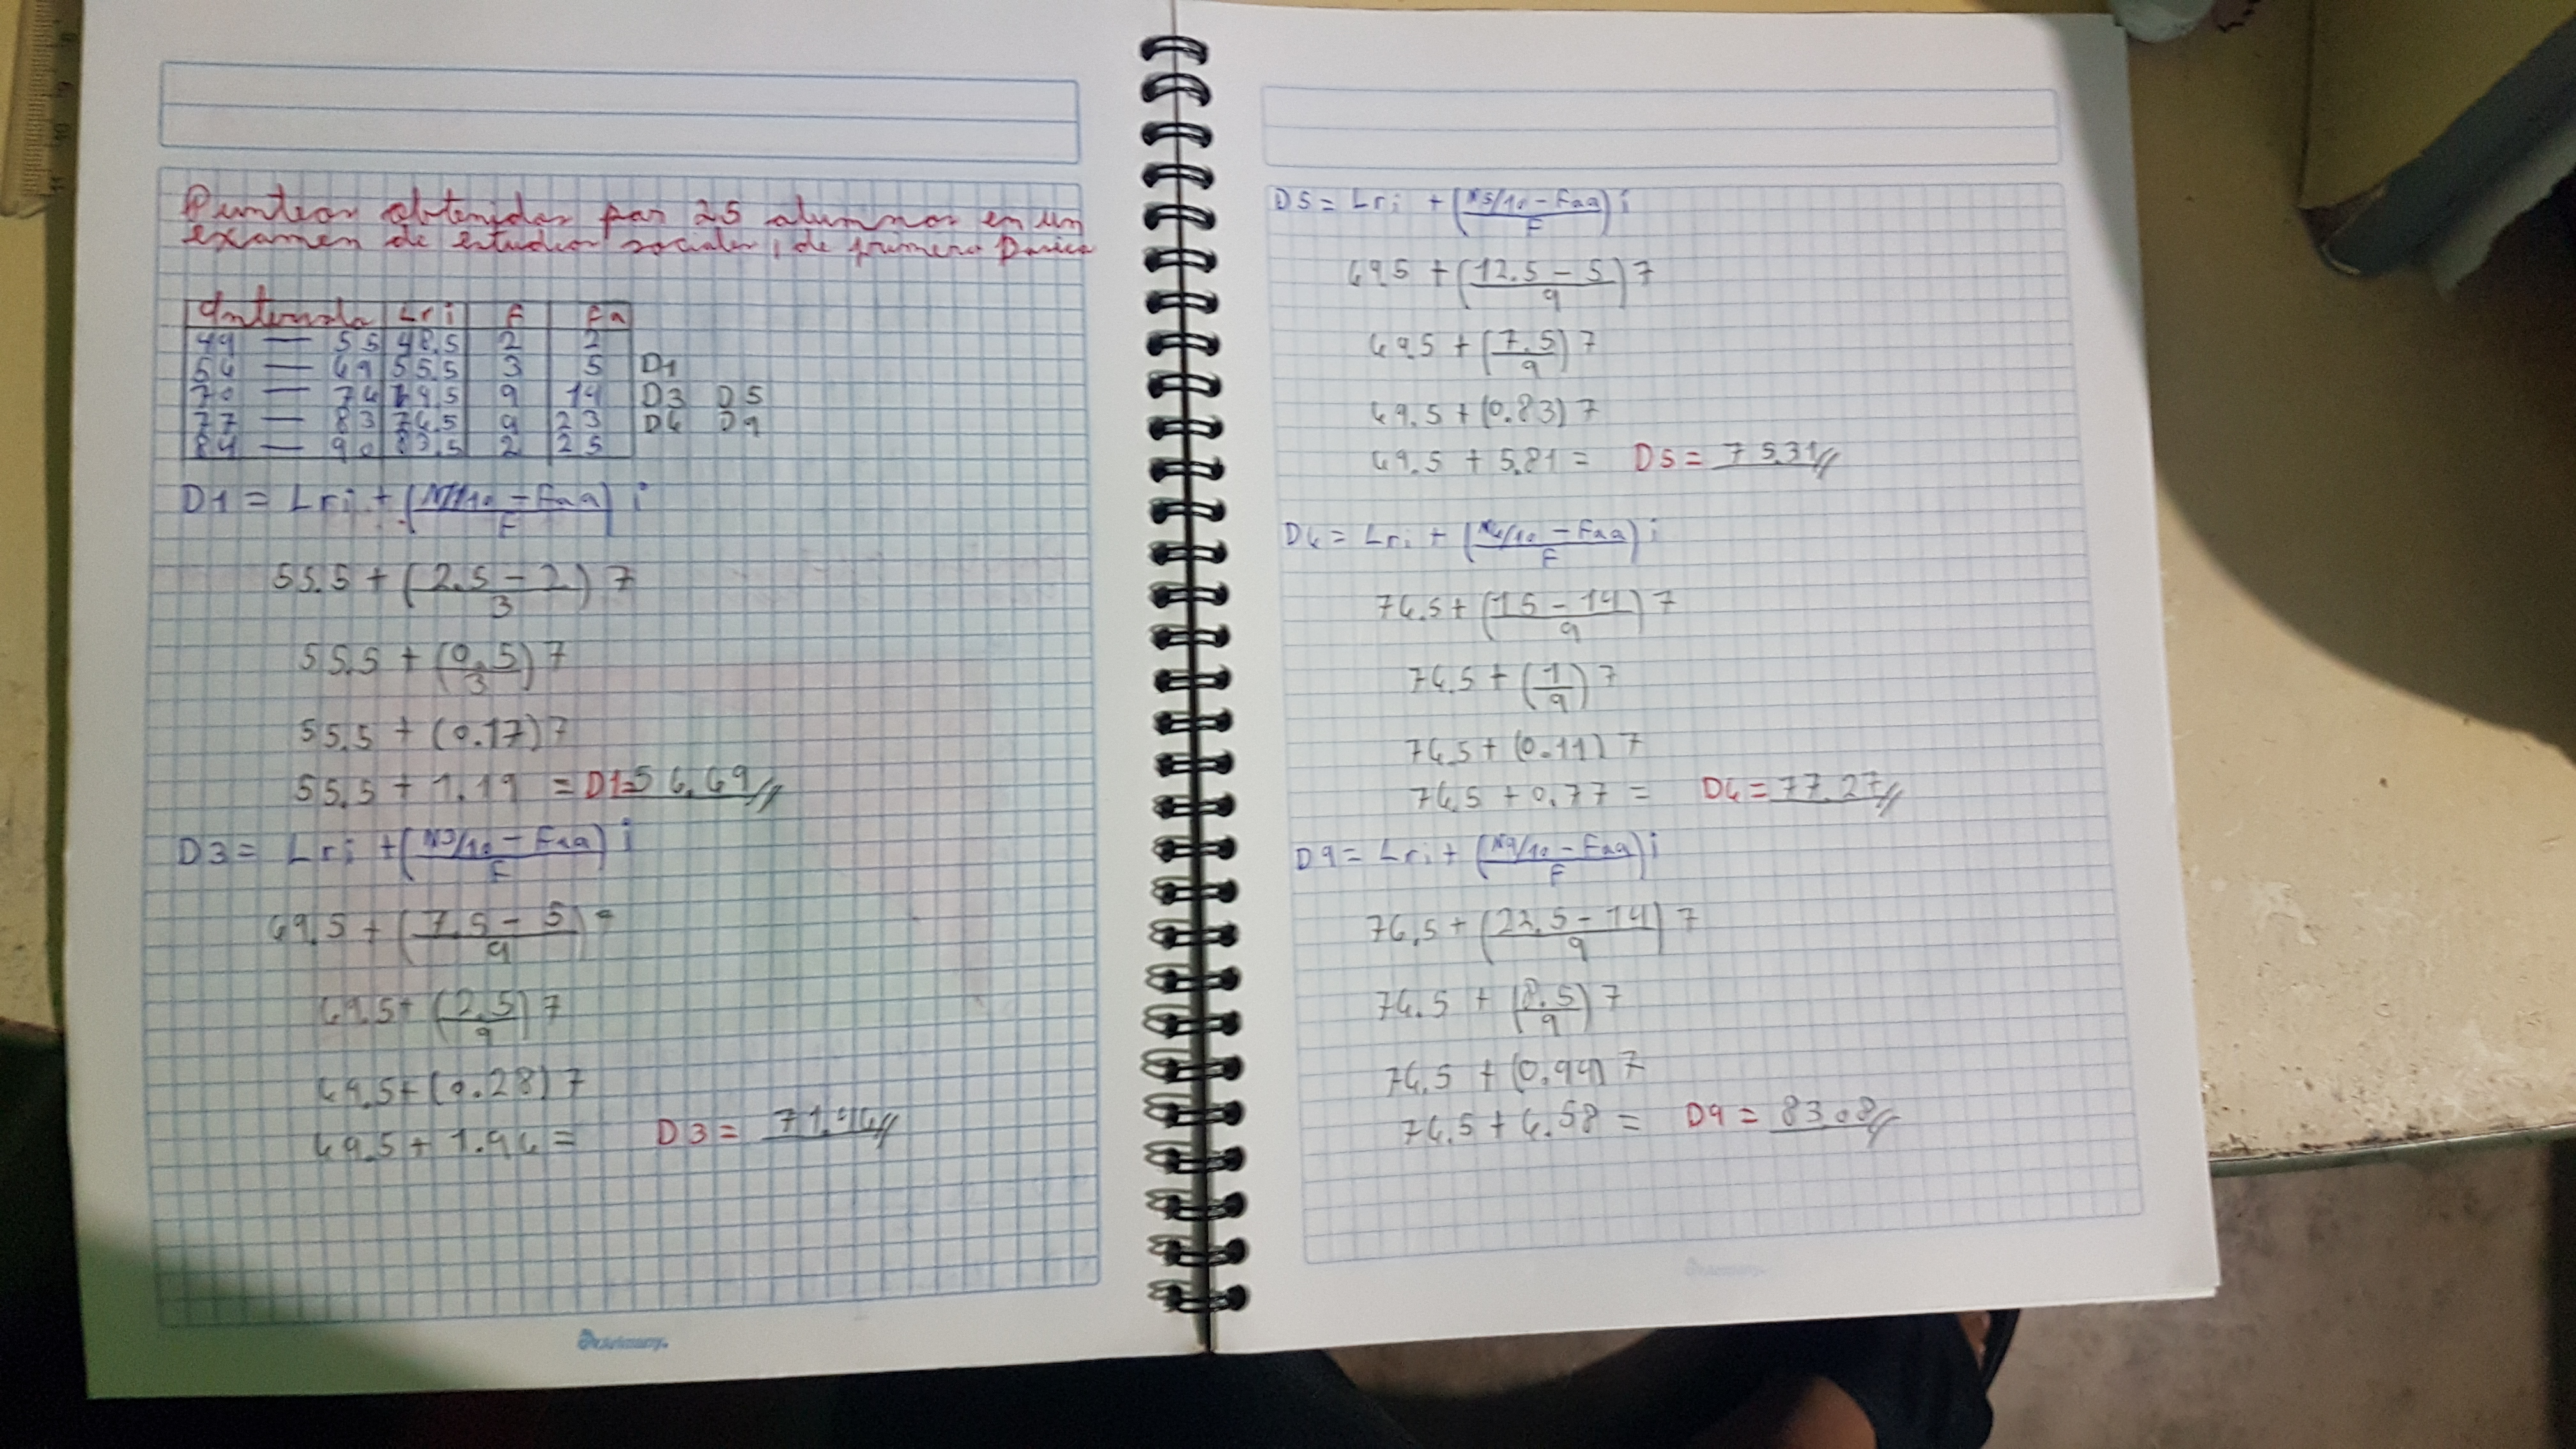 Punteos obtenidos por 25 alumnos en un
examen de estudios sociales, de primero Basico
Intervalo Lri F Fa
49 — 55 48.5 2 2
56 — 69 55.5 3 5 D1
70 — 76 69.5 9 14 D3 D5
77 — 83 76.5 9 23 D6 D9
84 — 90 83.5 2 25
D1 = Lri + (N1/10 - Faa) i
F
55.5 + (2.5 - 2) 7
3
55.5 + (0.5) 7
3
55.5 + (0.17) 7
55.5 + 1.19 = D1= 56.69//
D3 = Lri + (N3/10 - Faa) i
F
69.5 + (7.5 - 5)
9
69.5 + (2.5) 7
9
69.5 + (0.28) 7
69.5 + 1.96 = D3 = 71.46//
D5 = Lri + (N5/10 - Faa) i
F
69.5 + (12.5 - 5) 7
9
69.5 + (7.5) 7
9
69.5 + (0.83) 7
69.5 + 5.81 = D5 = 75.31//
D6 = Lri + (N6/10 - Faa) i
F
76.5 + (15 - 14) 7
9
76.5 + (1) 7
9
76.5 + (0.11) 7
76.5 + 0.77 = D6 = 77.27//
D9 = Lri + (N9/10 - Faa) i
F
76.5 + (22.5 - 14) 7
9
76.5 + (8.5) 7
9
76.5 + (0.94) 7
76.5 + 6.58 = D9 = 83.08//